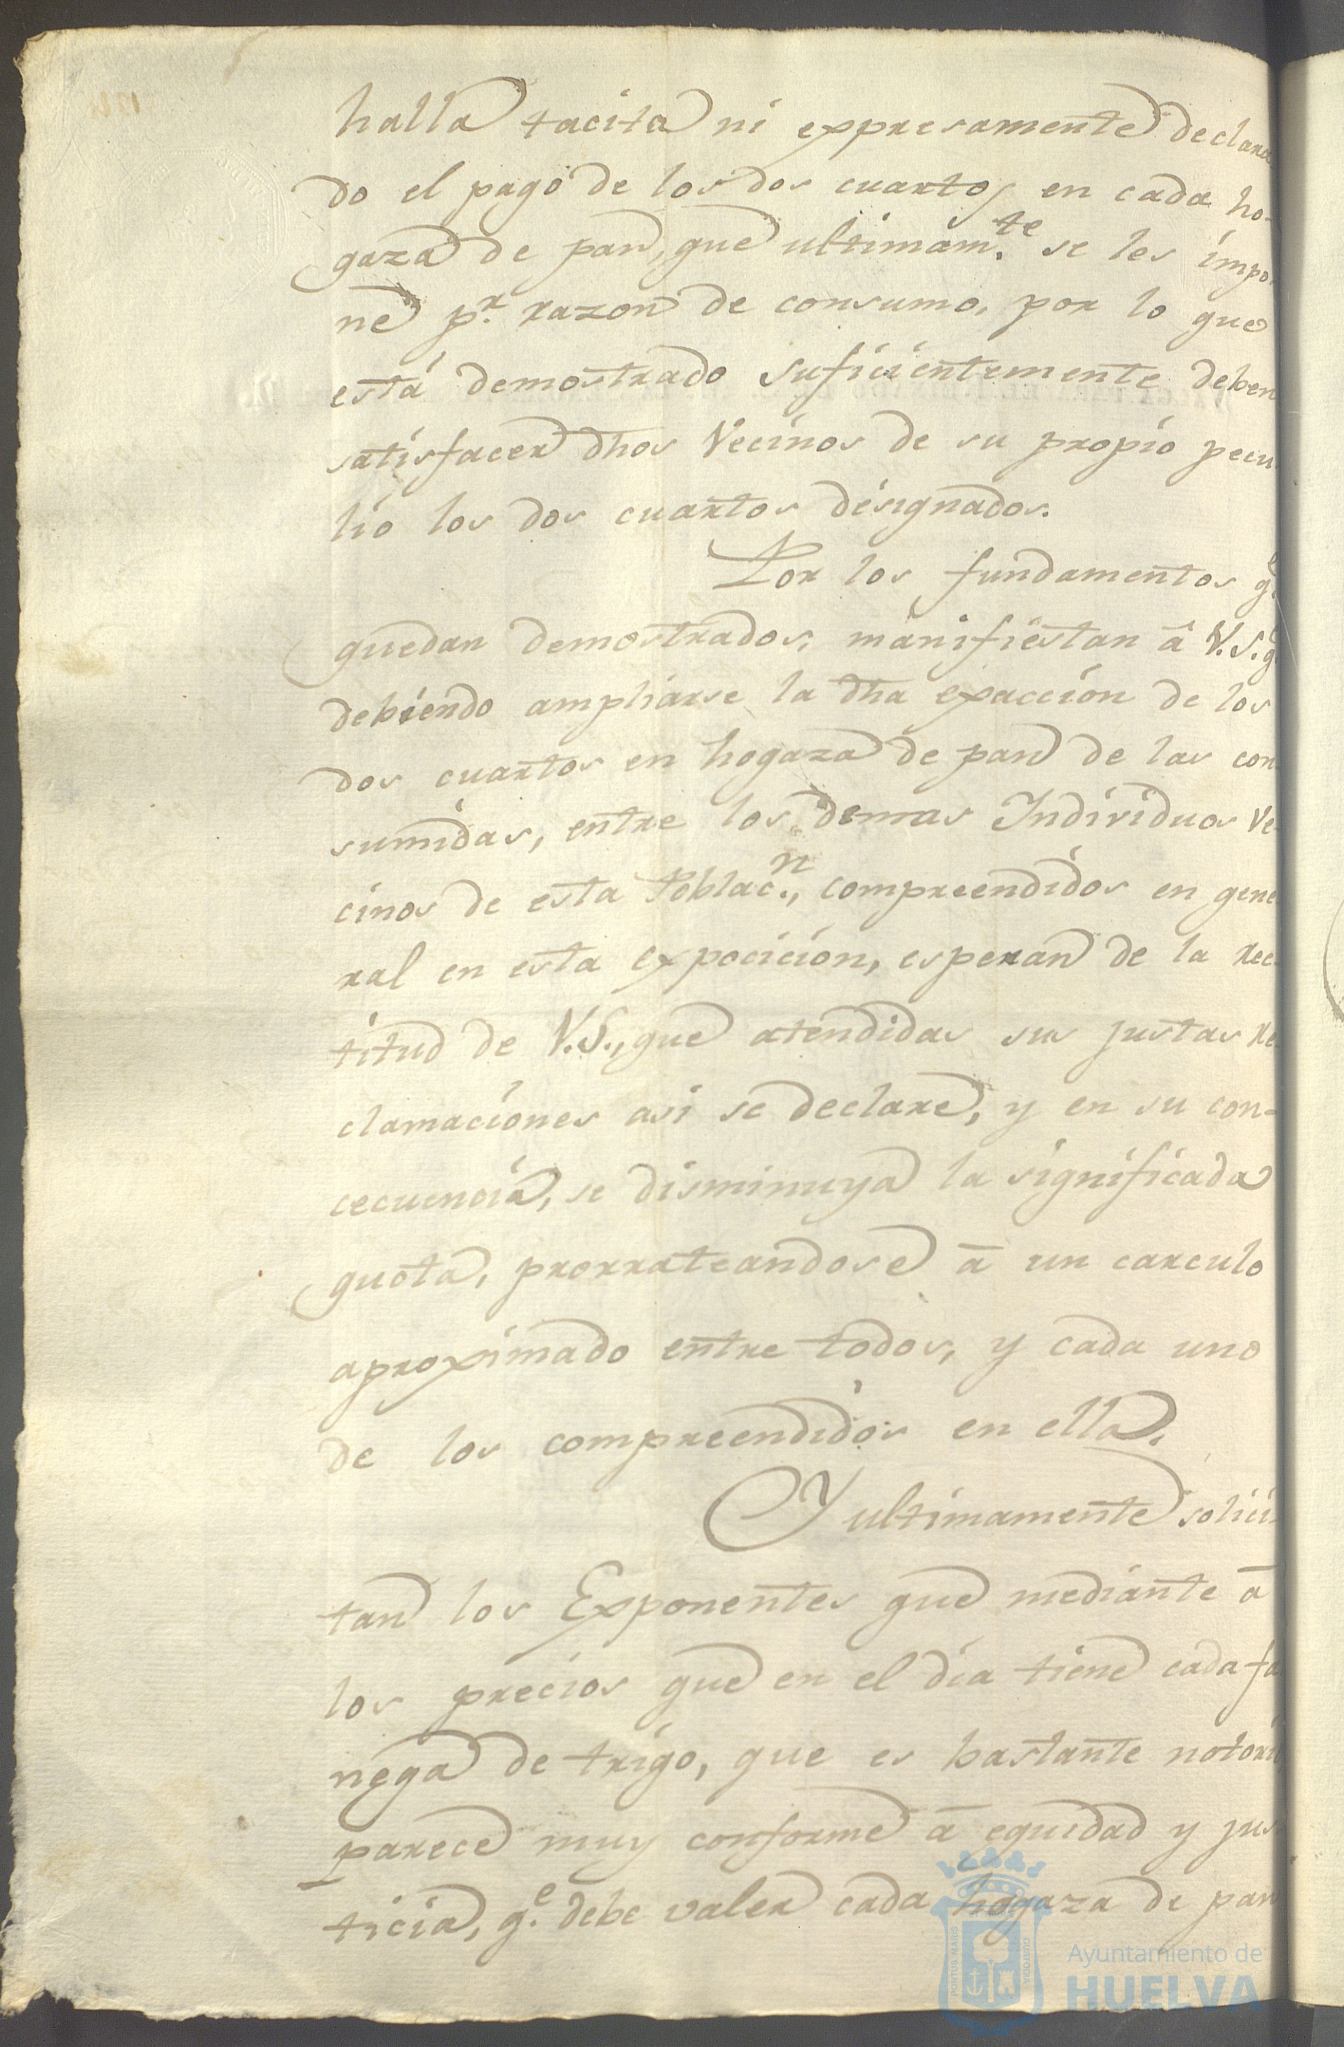 halla tacita ni expresamente declara
do el pago de los dos cuartos en cada ho-
gaza de pan, que ultimam.te se les impo
ne p.r razon de consumo, por lo que
está demostrado suficientemente deben
satisfacer dhos Vecinos de su propio pecu
lio los dos cuartos designados.
Por los fundamentos q.e
quedan demostrados, manifiestan â V.S. q.e
debiendo ampliarse la dha exaccion de los
dos cuartos en hogaza de pan de las con
sumidas, entre los demas Individuos Ve-
cinos de esta Poblac.n, compreendidos en gene
ral en esta exposicion, esperan de la rec-
titud de V.S., que atendidas sus justas re
clamaciones asi se declare, y en su con-
cecuencia, se disminuya la significada
quota, prorrateandose â un carculo
aproximado entre todos, y cada uno
de los compreendidos en ella.
Y ultimamente solici
tan los Exponentes que mediante â
los precios que en el dia tiene cada fa
nega de trigo, que es bastante notorio
parece muy conforme â equidad y jus
ticia, q.e debe valer cada hogaza de pan
Ayuntamiento de
HUELVA